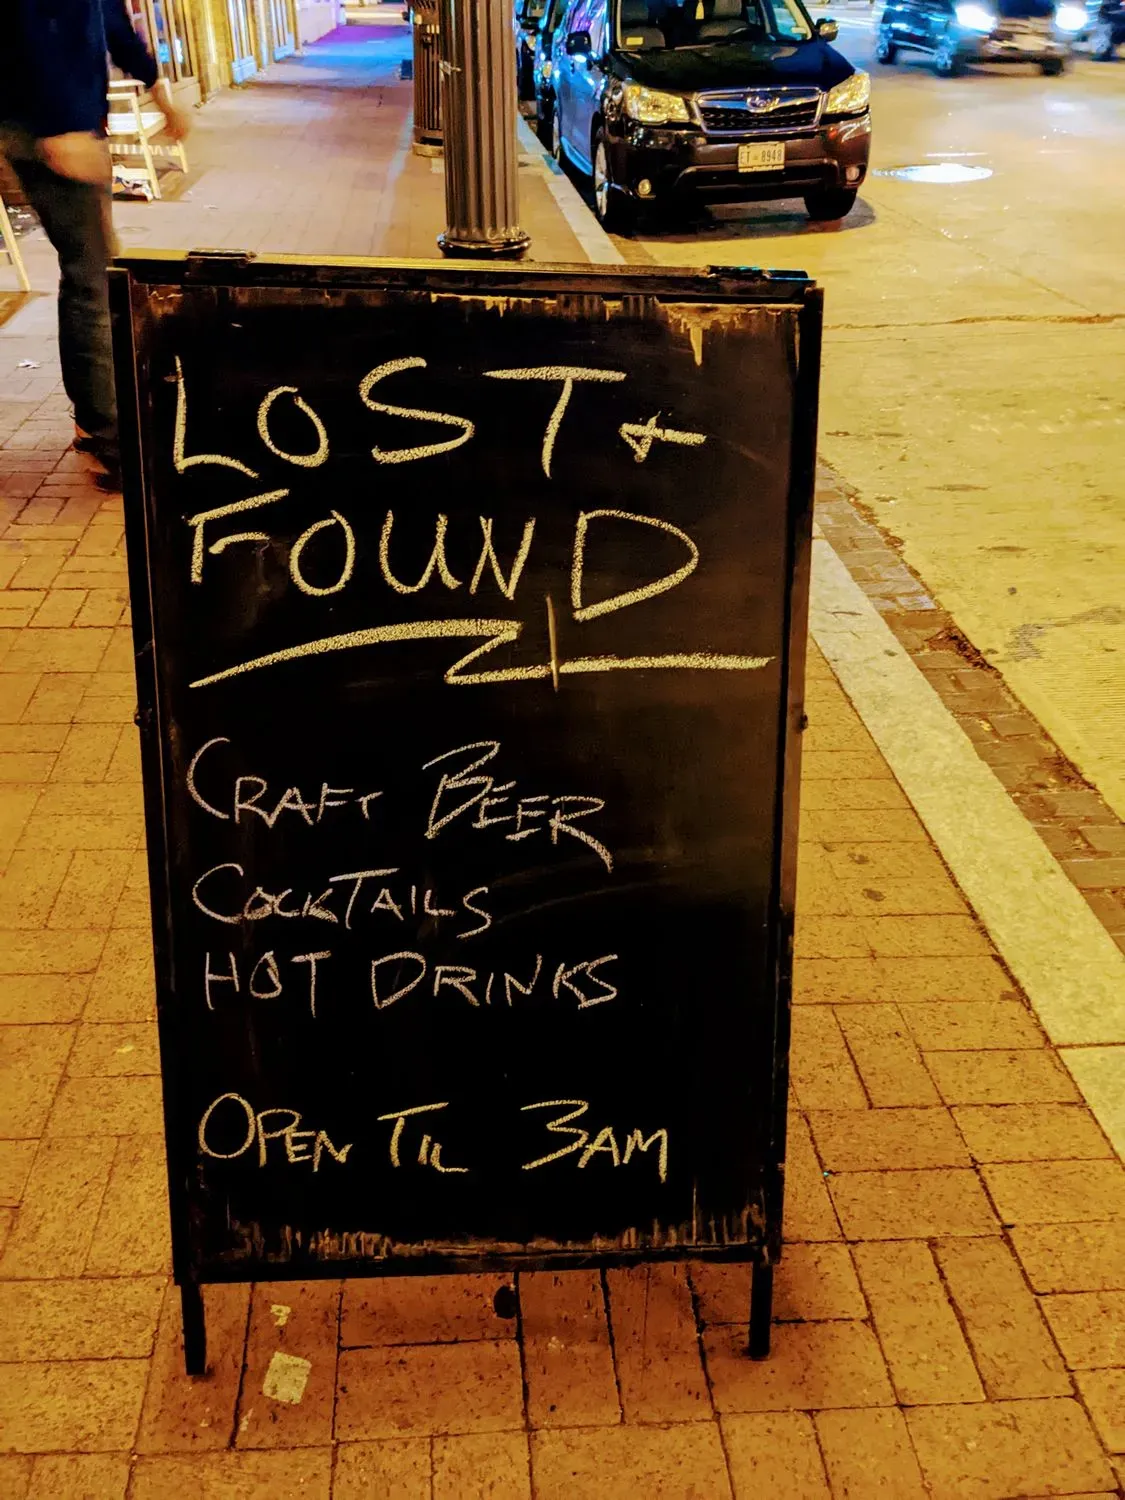 ET-8948
LOST &
FOUND
CRAFT BEER
COCKTAILS
HOT DRINKS
OPEN TIL 3AM